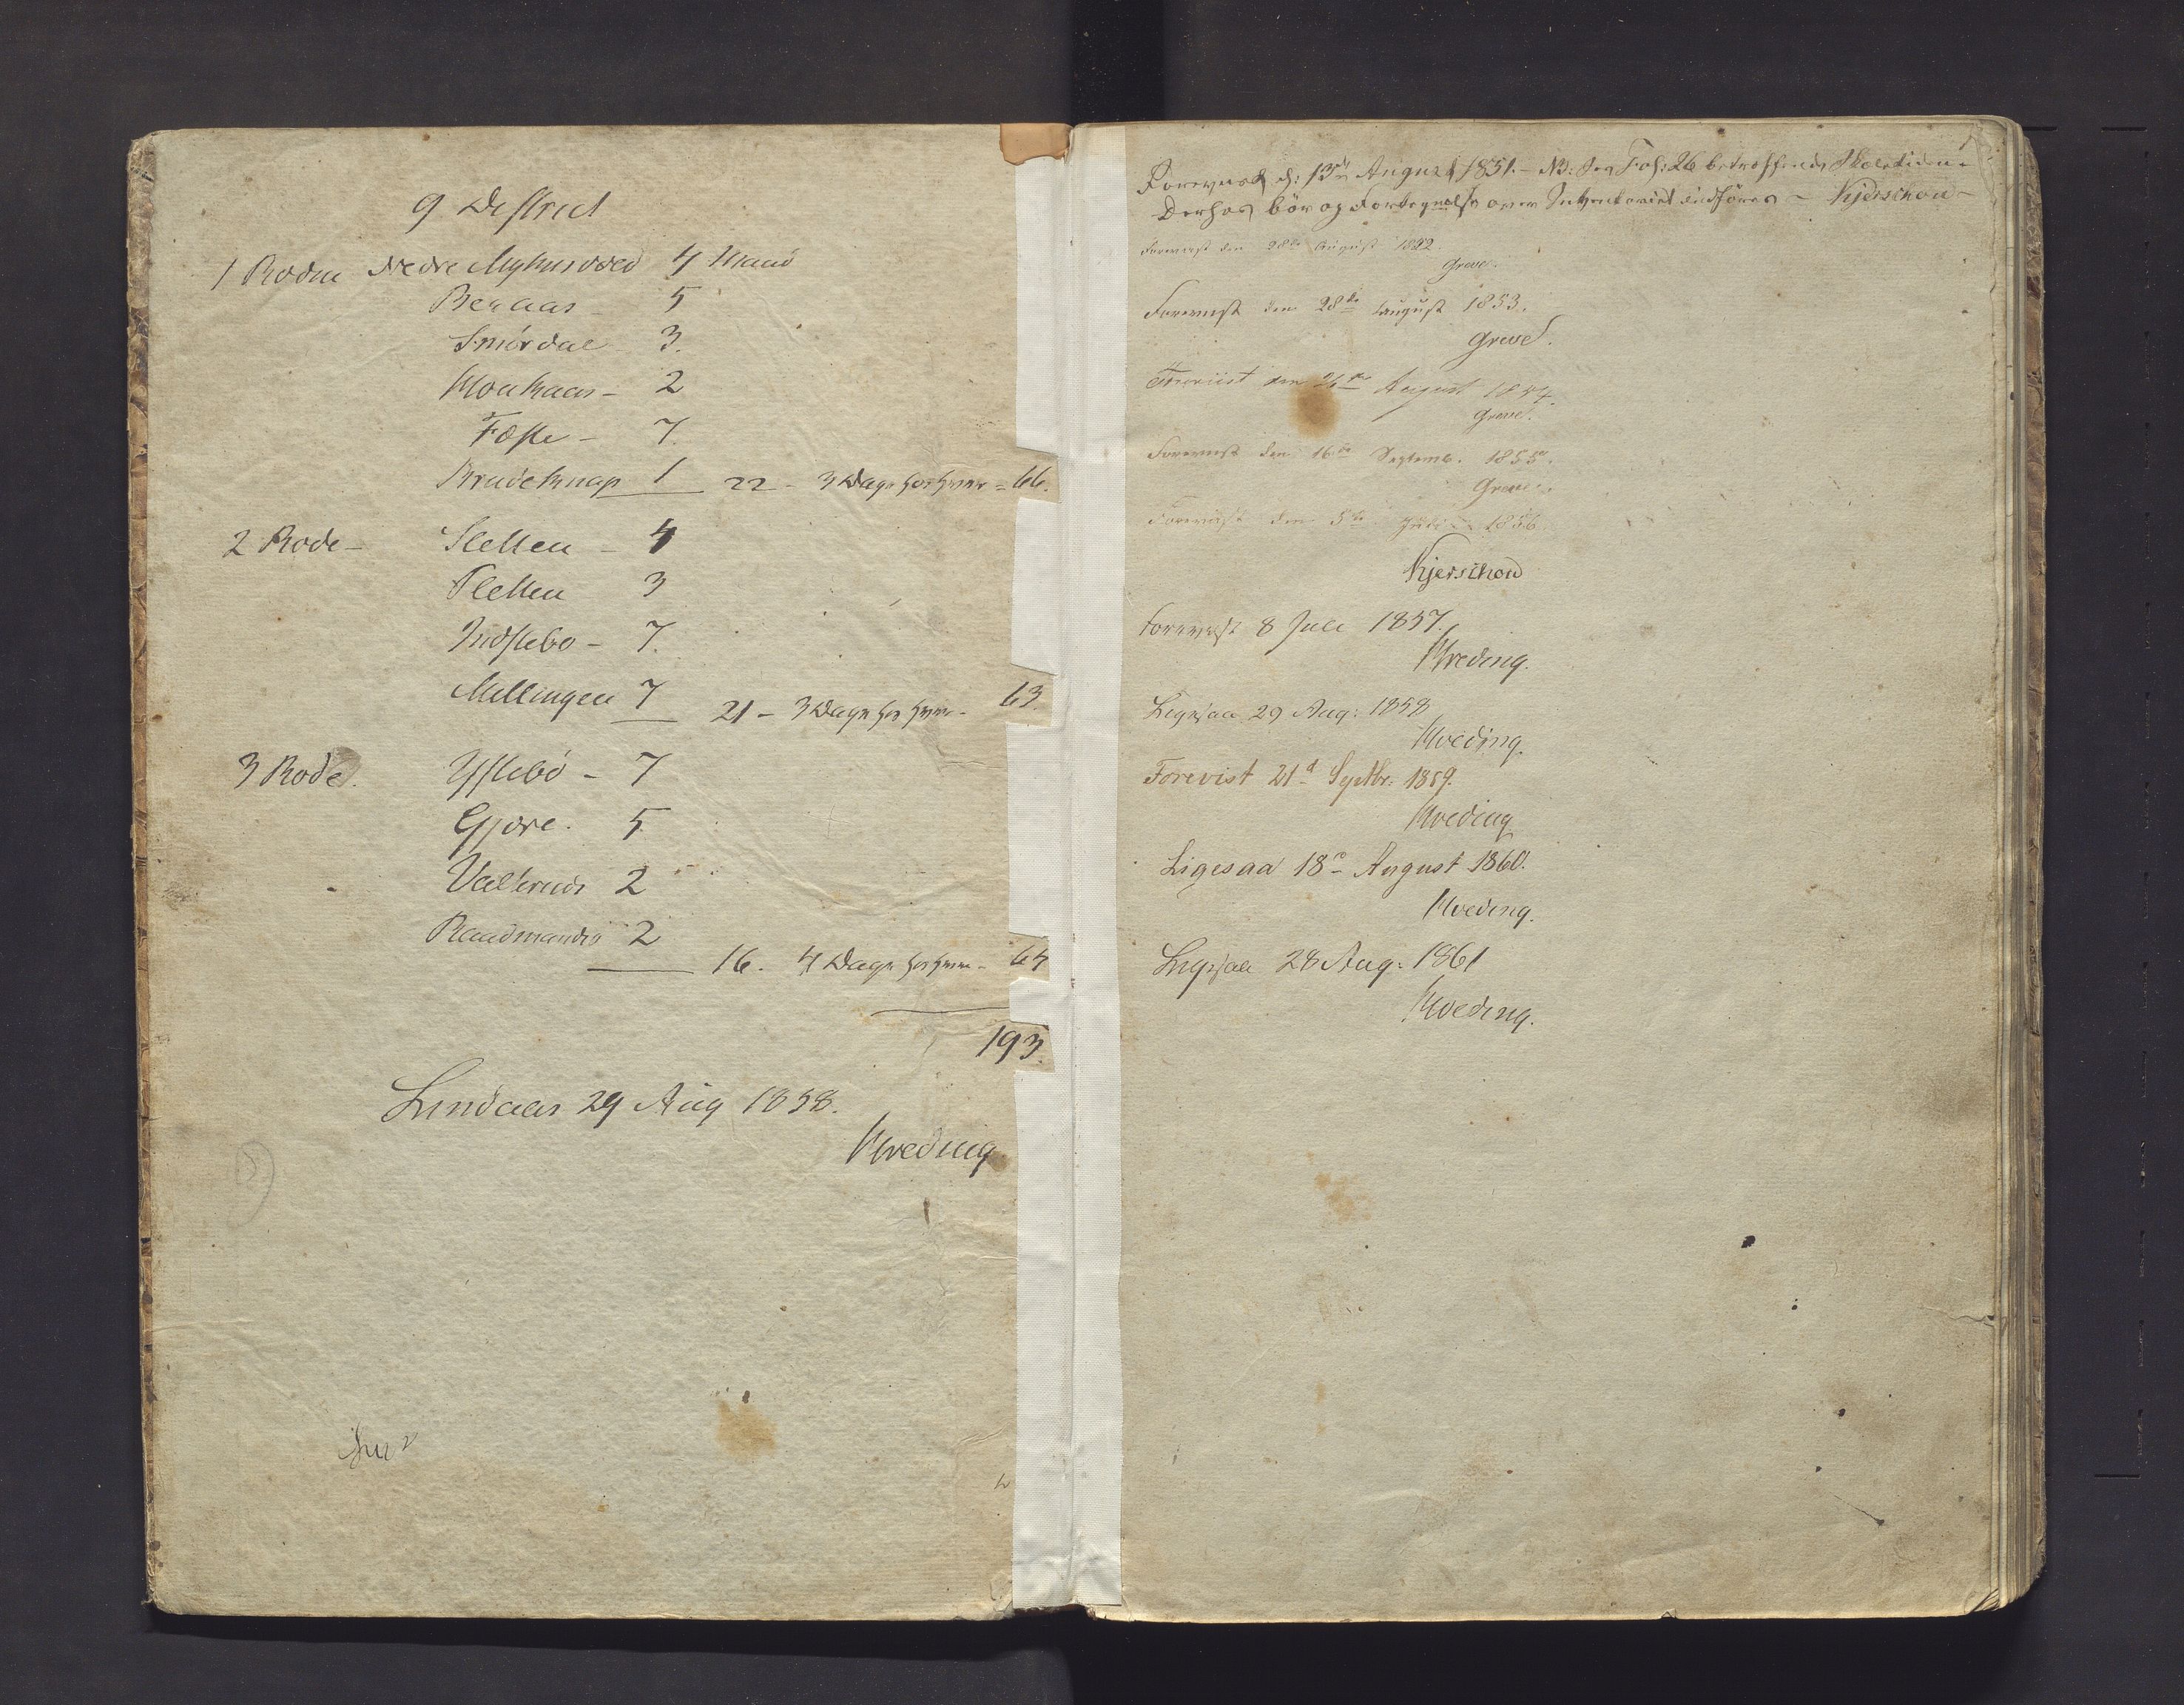 9 District
1 Roden Nedre Mykinsvoed 4 Mænd
Beraas - 5
Smördal - 3.
Monkaas - 2
Foste - 7.
Brudeknap 1 22 - 3 Dage hos hver = 66.
2 Rode - Sletten - 4
Pletten 3
Indstebo - 7.
Mellingen 7 21 - 3 Dage hos hver - 63.
3 Rode. Ystebö - 7
Gjöre. 5
Valkrids 2
Raadmands 2
16. 4 Dage hos hver - 64
193.
Lindaas 29 Aug 1858.
Kveding
Forevist d: 13de August 1851. - NB: See Fol: 26 betræffende Skoletiden.
Derhos bör og Fortegnelse over Inventariet indföres - Kjerschow -
Forevist den 28de August 1852.
Greve.
Forevist den 28de August 1853.
Greve.
Foreviist den August 1854.
Greve.
Forevist den 16de Septemb. 1855.
Greve.
Forevist den 5te Juli 1856
Kjerschow
Forevist 8 Juli 1857.
Kveding.
Ligesaa 29 Aug: 1858
Kveding.
Forevist 21d Septbr: 1859.
Kveding
Ligesaa 18e August 1860.
Kveding.
Ligesaa 28 Aug: 1861
Kveding.